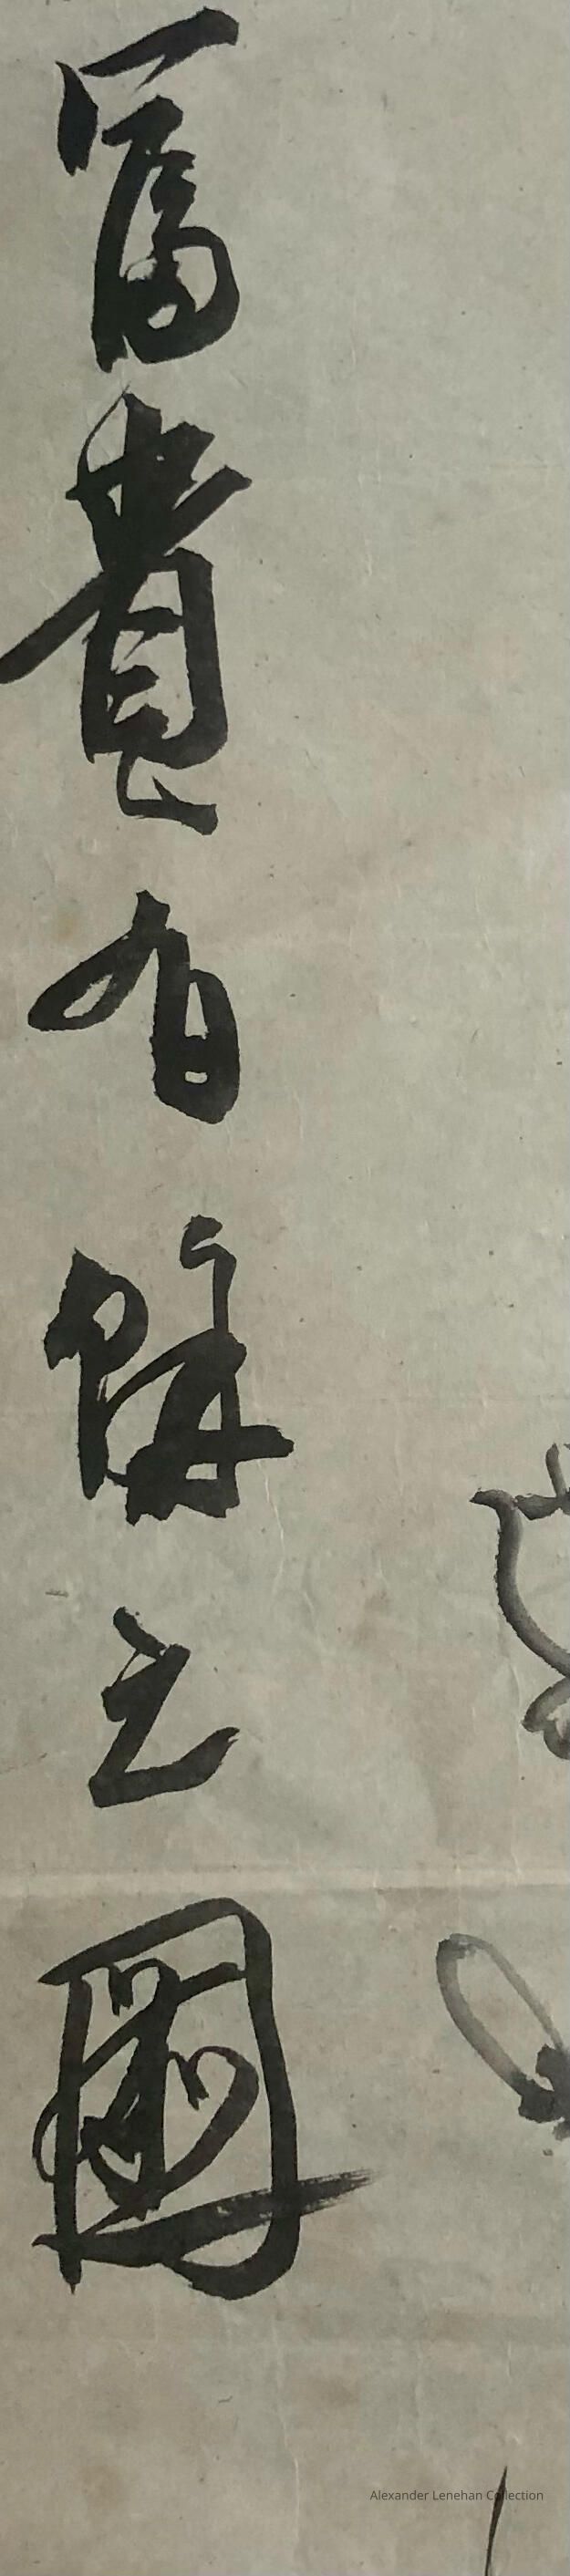 富貴有餘之圖
Alexander Lenehan Collection